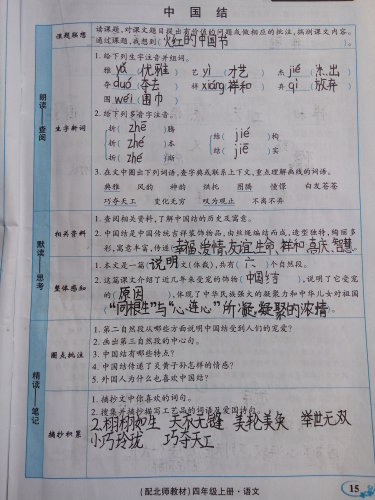 中国结
课题联想
读课题,对课文题目提出有价值的问题或做相应的批注,搞别课文内容。
通过课题,我想到(火红的中国节
朗读——查阅
生字新词
1. 给下列生字注音并组词。
雅 yǎ 优雅 艺 yì 才艺 杰 jié 杰出
夺 duó 夺去 祥 xiáng 祥和 弃 qì 放弃
围 wéi 围巾
2. 给下列多音字注音。
折( zhē )腾 结( jié )构
折( zhé )本 结( jiē )实
折( zhé )断
3. 在文中图由下列词语,查字典或联系上下文,重点理解画线的词语。
典雅 风韵 神韵 烘托 图腾 憧憬 白发苍苍
巧夺天工 变化无穷 叹为观止 不离不弃
默读——思考
相关资料
1. 查阅相关资料,了解中国结的历史及寓意。
2. 中国结是中国传统吉祥装饰物品,由丝绳编结而成,造型独特,绚丽多
彩,寓意丰富,传递(幸福、爱情、友谊、生命、祥和、喜庆、智慧
整体感知
1. 本文是一篇(说明)文(体裁),共有( 六 )个自然段。
2. 这篇课文介绍了近几年来受宠的饰物(中国结),说明了它受宠
的(原因),体现了中华民族强大的凝聚力和中华儿女对祖国
(“同根生”与“心连心”所凝凝聚的浓情)。
精读——笔记
圈点批注
1. 第二自然段从哪些方面说明中国结受到人们的宠爱?
2. 画出第三自然段的中心句。
3. 中国结有哪些特点?
4. 中国结传递了炎黄子孙怎样的情感?
5. 外国人为什么也喜欢中国结?
摘抄积累
1. 摘抄文中你喜欢的词句。
2. 搜集并摘抄描写工艺品的词语及爱国诗句。
2.栩栩如生 天衣无缝 美轮美奂 举世无双
小巧玲珑 巧夺天工
(配北师教材)四年级上册·语文 15